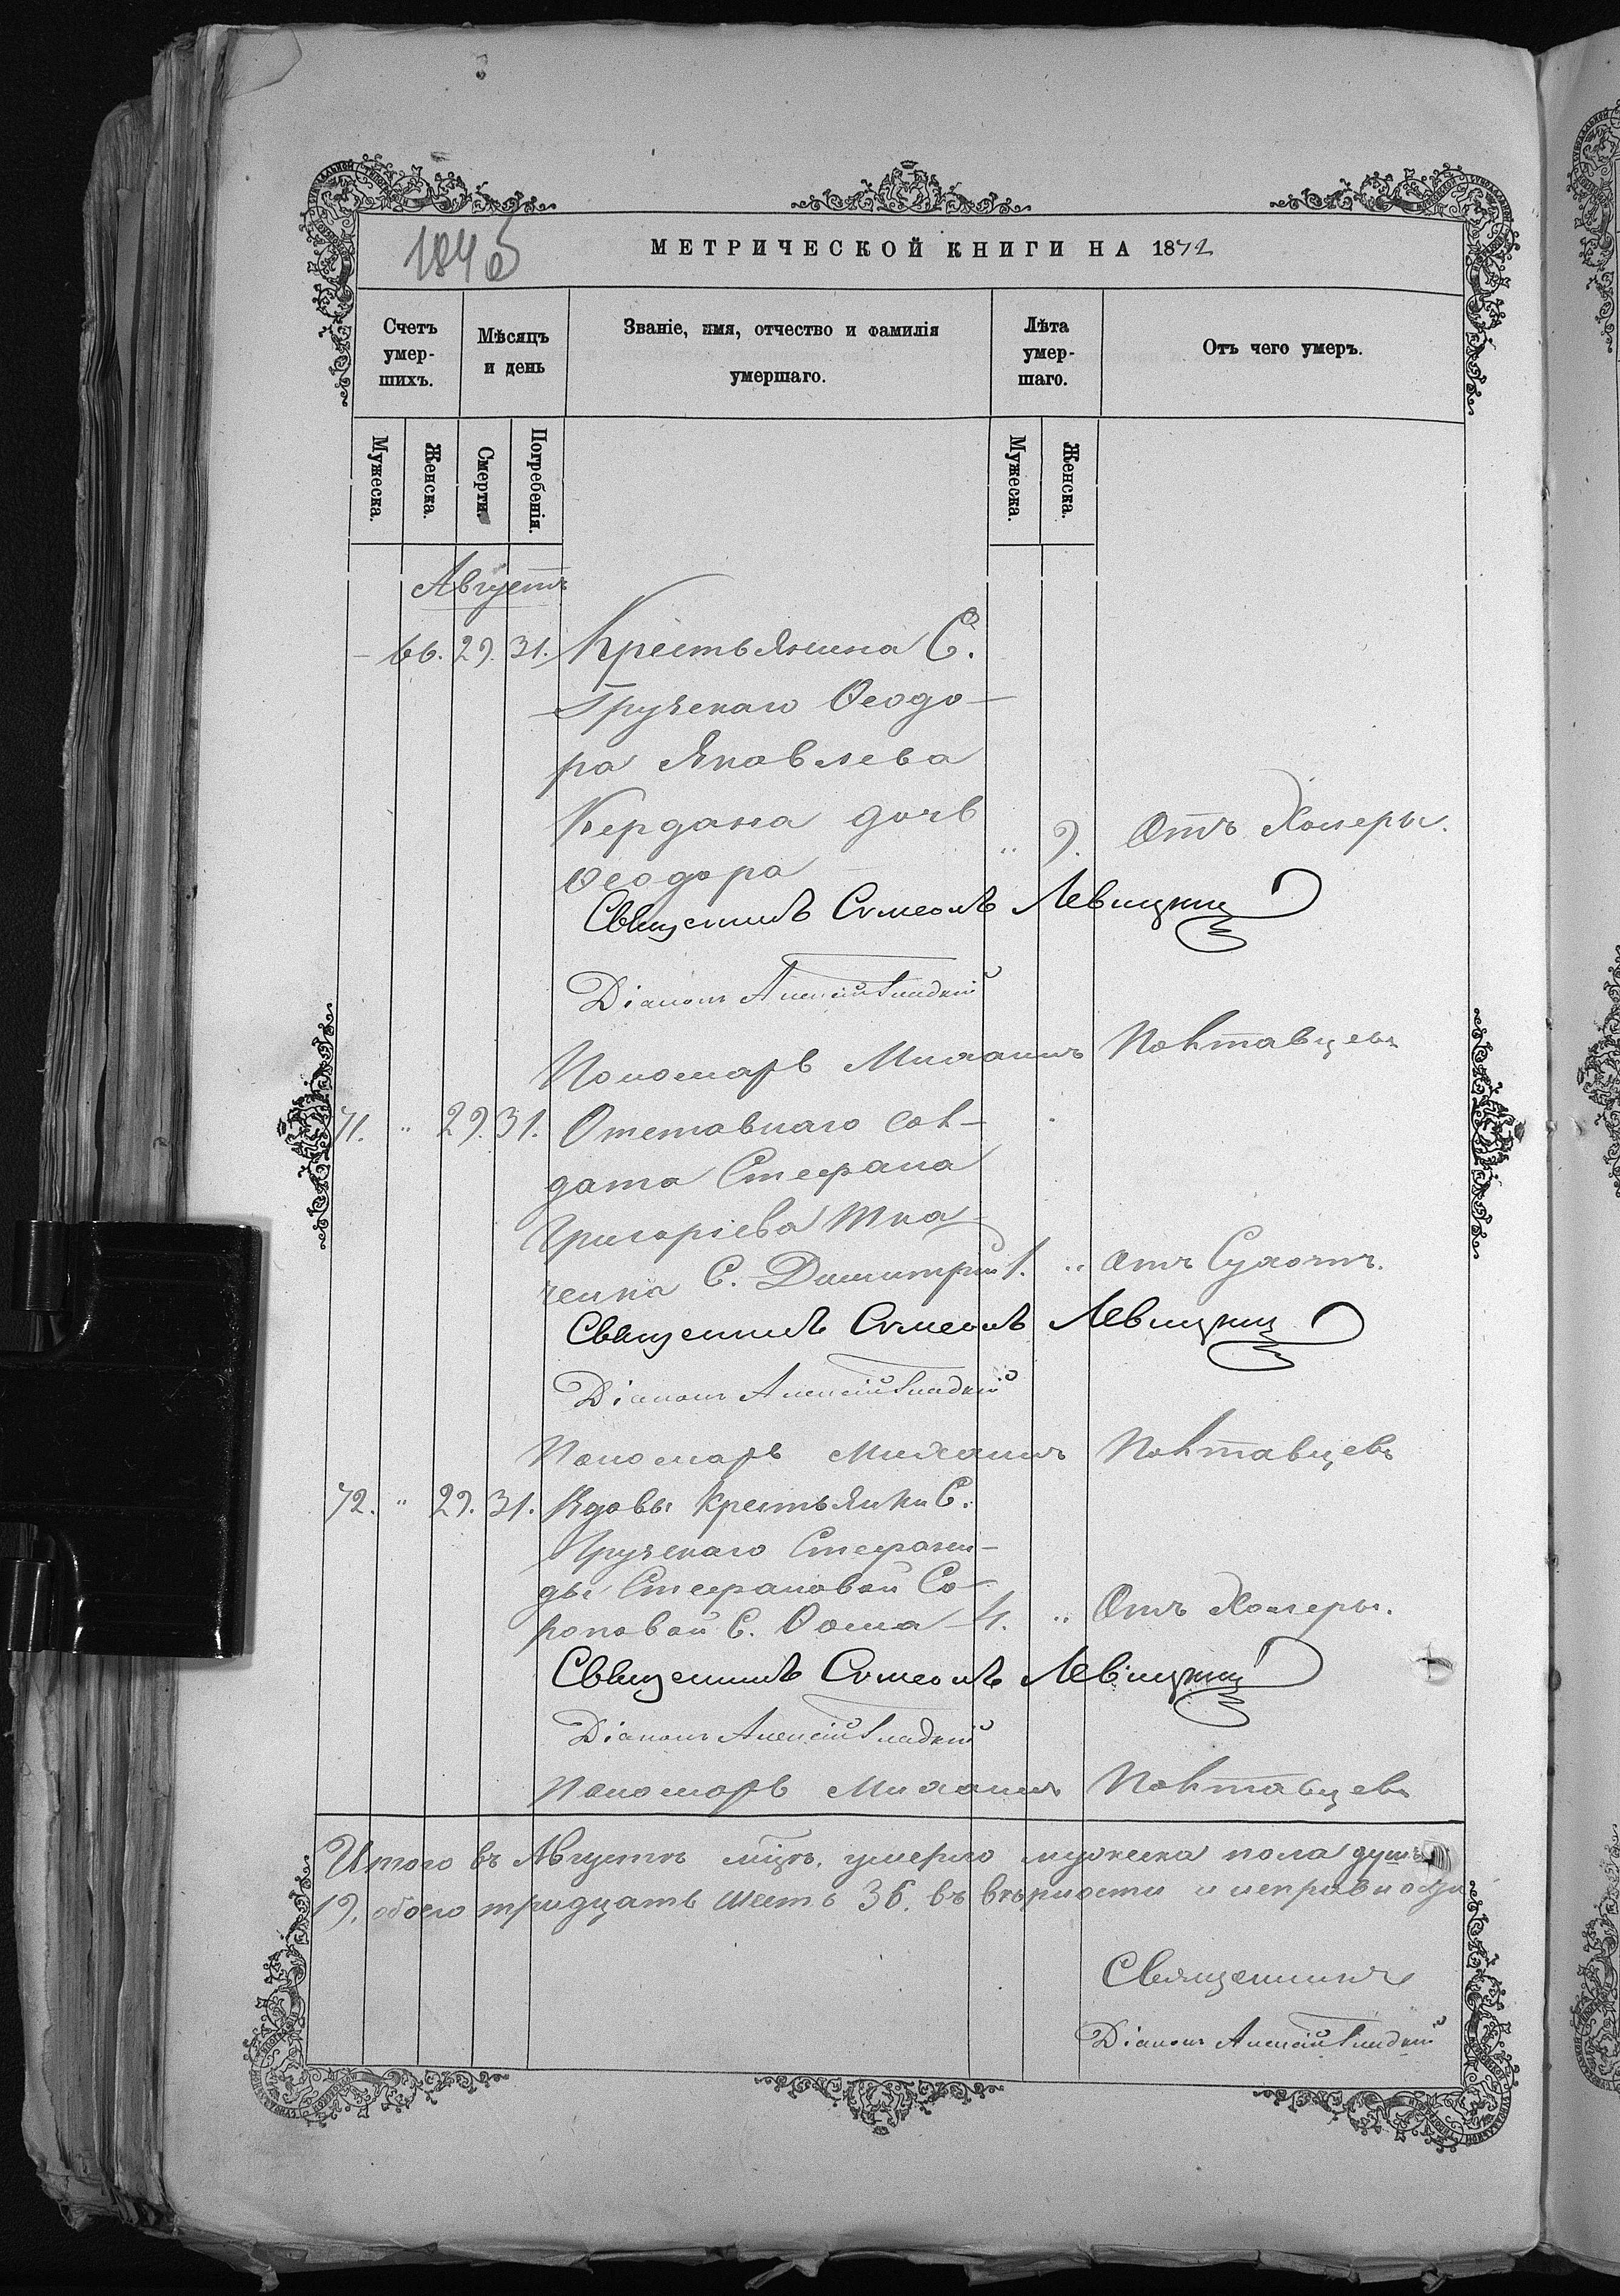 1846
МЕТРИЧЕСКОЙ КНИГИ НА 1872
Счетъ умер-шихъ.
Мѣсяцъ и день
Званіе, имя, отчество и фамилія умершаго.
Лѣта умер-шаго.
Отъ чего умеръ.
Мужеска. Женска. Смерти. Погребенія. Мужеска. Женска.
Августъ
— 66. 29. 31. Крестьянина С.
Грузскаго Ѳеодо-
ра Яковлева
Кердана дочь
Ѳеодора „ 9. Отъ Холеры.
Священникъ Симеонъ Левицкій
Діаконъ Алексій Гладкій
Пономарь Михаилъ Полтавцевъ
71. „ 29. 31. Отставнаго сол-
дата Стефана
Григоріева Тка-
ченка С. Димитрій 1. „ отъ Сухотъ.
Священникъ Симеонъ Левицкій
Діаконъ Алексій Гладкій
Пономарь Михаилъ Полтавцевъ
72. „ 29. 31. Вдовы крестьянки С.
Грузскаго Стефани-
ды Стефановой Со-
роковой С. Ѳома 4. „ Отъ Холеры.
Священникъ Симеонъ Левицкій
Діаконъ Алексій Гладкій
Пономарь Михаилъ Полтавцевъ
Итого въ Августѣ мцѣ. умерло мужеска пола душъ
19. обоего тридцать шесть 36. въ вѣрности и исправности
Священникъ
Діаконъ Алексій Гладкій